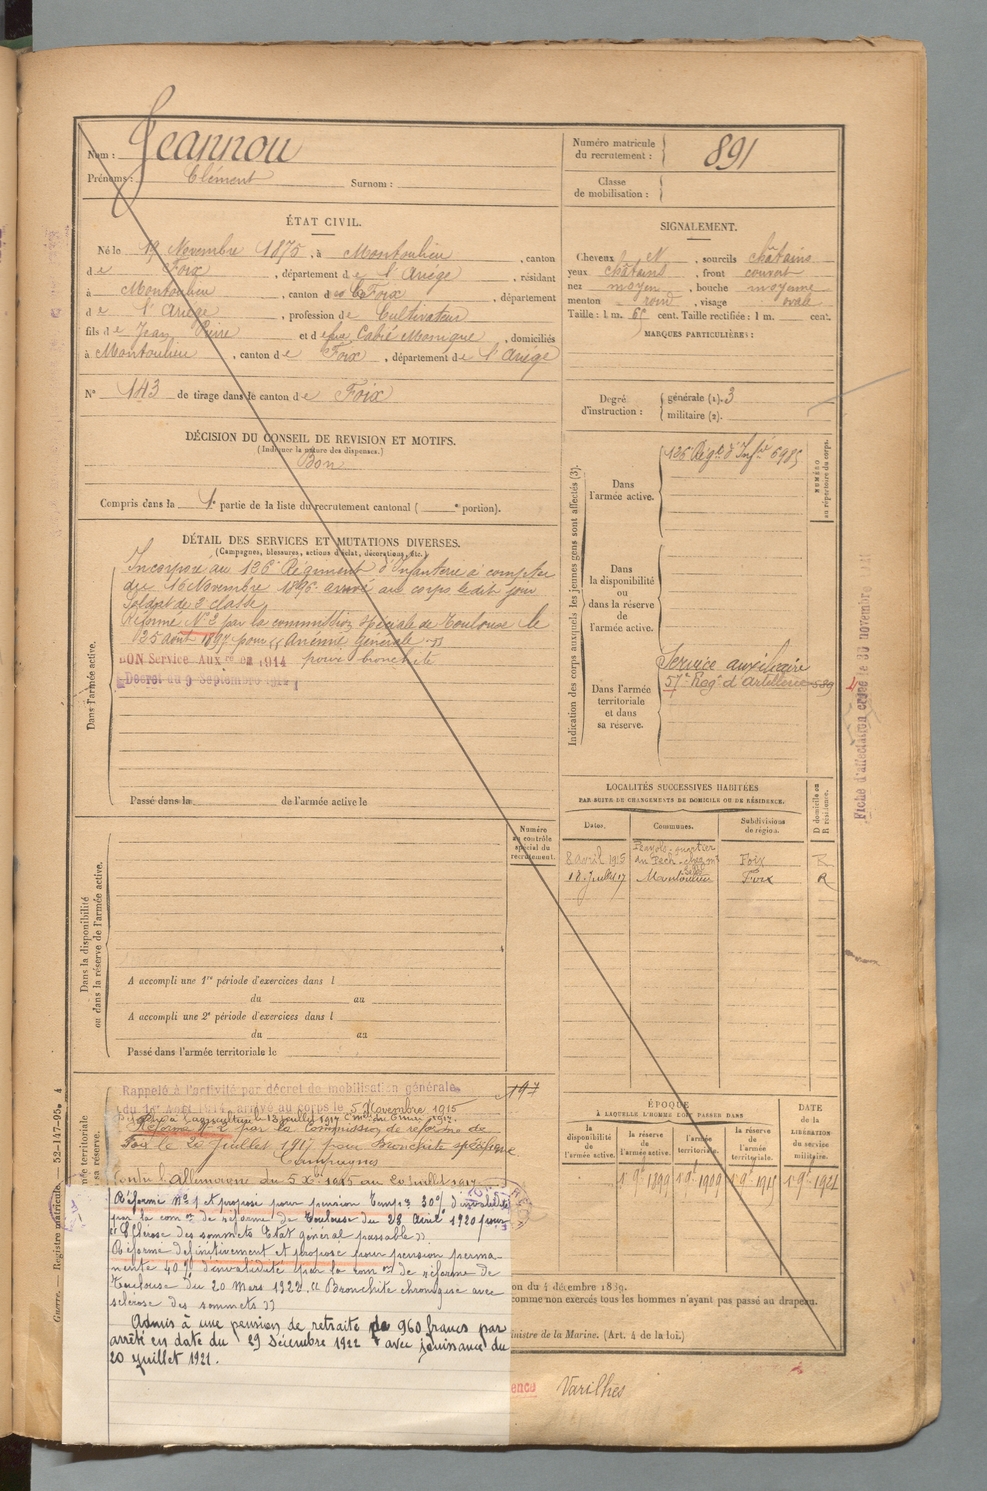 Nom : Jeannou
Prénoms : Clément Surnom :
Numéro matricule
du recrutement : 891
Classe
de mobilisation :
ÉTAT CIVIL.
Né le 19 Novembre 1875, à Montoulieu, canton
de Foix, département de l'Ariège, résidant
à Montoulieu, canton de Foix, département
de l'Ariège, profession de Cultivateur
fils de Jean Pierre et de feue Cabié Monique, domiciliés
à Montoulieu, canton de Foix, département de l'Ariège
N° 143 de tirage dans le canton de Foix
DÉCISION DU CONSEIL DE REVISION ET MOTIFS.
(Indiquer la nature des dispenses.)
Bon
Compris dans la 1e partie de la liste du recrutement cantonal ( e portion).
SIGNALEMENT.
Cheveux N, sourcils châtains
yeux châtains, front couvert
nez moyen, bouche moyenne
menton rond, visage ovale
Taille : 1 m. 65 cent. Taille rectifiée : 1 m. cent.
MARQUES PARTICULIÈRES :
Degré
d'instruction :
générale (1). 3
militaire (2).
DÉTAIL DES SERVICES ET MUTATIONS DIVERSES.
(Campagnes, blessures, actions d'éclat, décorations, etc.)
Dans l'armée active.
Incorporé au 126e Régiment d'Infanterie à compter
du 16 Novembre 1896 arrivé au corps le dit jour
Soldat de 2e classe
Réformé N° 2 par la commission spéciale de Toulouse le
25 août 1897 pour "Anémie générale"
BON Service Auxre en 1914 pour bronchite
Décret du 9 Septembre 1914
Passé dans la de l'armée active le
Indication des corps auxquels les jeunes gens sont affectés (3).
NUMÉRO
au répertoire du corps.
Dans
l'armée active.
126 Régt d'Infie 6985
Dans
la disponibilité
ou
dans la réserve
de
l'armée active.
Dans l'armée
territoriale
et dans
sa réserve.
Service auxiliaire
57e Regt d'Artillerie 589
Fiche d'affectation créée le 30 novembre
LOCALITÉS SUCCESSIVES HABITÉES
PAR SUITE DE CHANGEMENTS DE DOMICILE OU DE RÉSIDENCE.
Dates.
Communes.
Subdivisions
de région.
D domicile ou
R résidence.
8 avril 1915 quartier du Pech Foix R
12 Juillet 17 Montoulieu Foix R
Numéro
au contrôle
spécial du
recrutement.
Dans la disponibilité
ou dans la réserve de l'armée active.
A accompli une 1re période d'exercices dans l
du au
A accompli une 2e période d'exercices dans l
du au
Passé dans l'armée territoriale le
Rappelé à l'activité par décret de mobilisation générale 197
du 1er Août 1914, arrivé au corps le 5 Novembre 1915
Réformé N° 2 par la Commission de réforme de
Foix le 20 juillet 1917 pour Bronchite spécifique
Campagnes
Contre l'Allemagne du 5 Xbre 1915 au 20 juillet 1917
Réformé N° 1 et proposé pour pension tempre 30% d'invalidité
par la comon de réforme de Toulouse du 28 Avril 1920 pour
"Sclérose des sommets Etat général passable".
Réformé définitivement et proposé pour pension perma-
nente 40% d'invalidité par la comon de réforme de
Toulouse du 20 Mars 1922 "Bronchite chronique avec
sclérose des sommets"
Admis à une pension de retraite de 960 francs par
arrêté en date du 29 Décembre 1922 avec jouissance du
20 Juillet 1921.
ÉPOQUE
À LAQUELLE L'HOMME DOIT PASSER DANS
la
disponibilité
de
l'armée active.
la réserve
de
l'armée active.
l'armée
territoriale.
la réserve
de l'armée
territoriale.
DATE
de la
LIBÉRATION
du service
militaire.
1 9bre 1899 1 9bre 1909 1 9bre 1915 1 9bre 1921
ou du 4 décembre 1889.
comme non exercés tous les hommes n'ayant pas passé au drapeau.
Ministre de la Marine. (Art. 4 de la loi.)
Varilhes
Guerre. — Registre matricule. — 52-147-95. 4